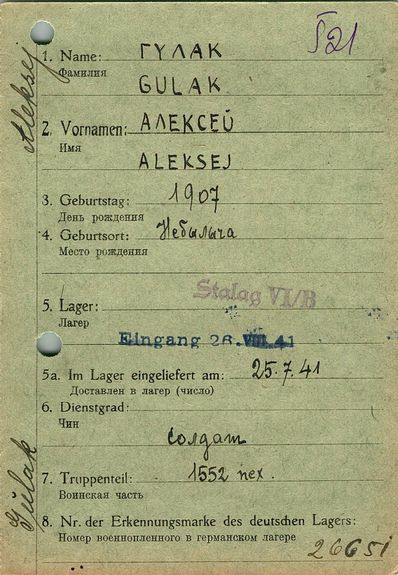 Š21
1. Name: ГУЛАК
Фамилия
GULAK
2. Vornamen: АЛЕКСЕЙ
Имя
ALEKSEJ
3. Geburtstag: 1907
День рождения
4. Geburtsort: Небылыча
Место рождения
Stalag VI/B
5. Lager:
Лагер
Eingang 26. VIII. 41
5a. Im Lager eingeliefert am: 25.7.41
Доставлен в лагер (число)
6. Dienstgrad:
Чин
солдат
7. Truppenteil: 1552 пех.
Воинская часть
8. Nr. der Erkennungsmarke des deutschen Lagers:
Номер военнопленного в германском лагере
26651
Aleksej
Gulak